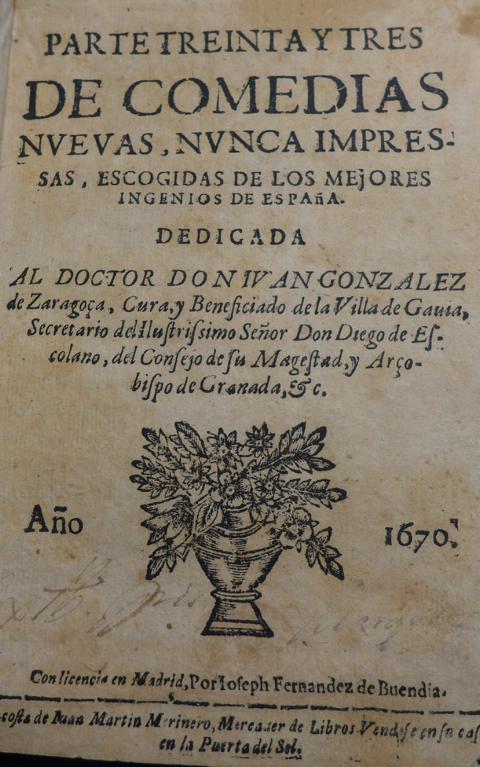 PARTE TREINTA Y TRES
DE COMEDIAS
NVEVAS, NVNCA IMPRES-
SAS, ESCOGIDAS DE LOS MEjORES
INGENIOS DE ESPAñA.
DEDICADA
AL DOCTOR DON IVAN GONZALEZ
de Zaragoça, Cura, y Beneficiado de la Villa de Gauia,
Secretario del Ilustrissimo Señor Don Diego de Es-
colano, del Consejo de su Magestad, y Arço-
bispo de Granada, &c.
Año 1670.
Con licencia en Madrid, Por Ioseph Fernandez de Buendia.
costa de Iuan Martin Merinero, Mercader de Libros Vendese en su cas
en la Puerta del Sol.